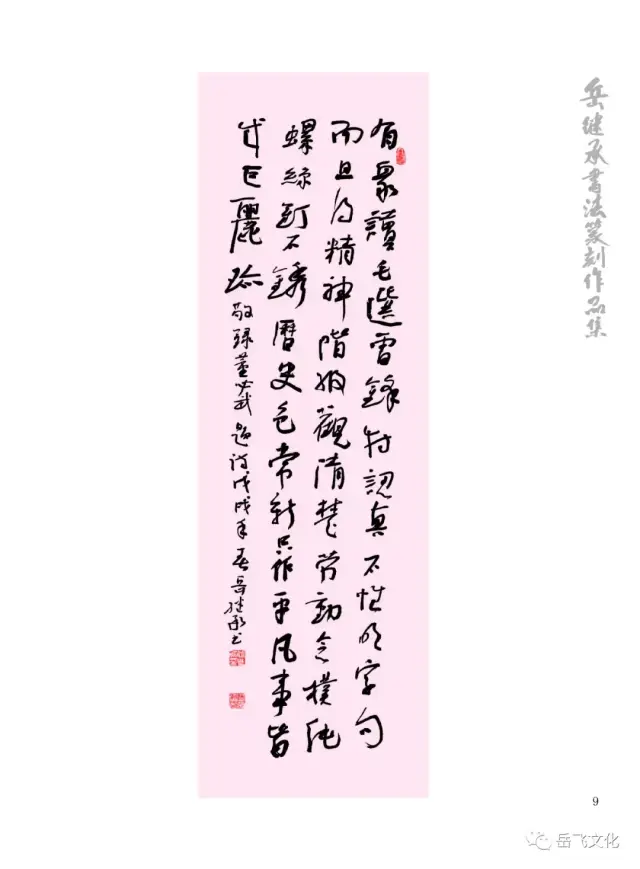 岳继承書法篆刻作品集
有眾讀毛選雷鋒特認真不惟明字句
而且得精神階級觀清楚勞動念樸純
螺絲釘不銹曆史色常新只作平凡事皆
成巨麗珍 敬録董必武題詩戊戌年春岳继承书
9
岳飞文化